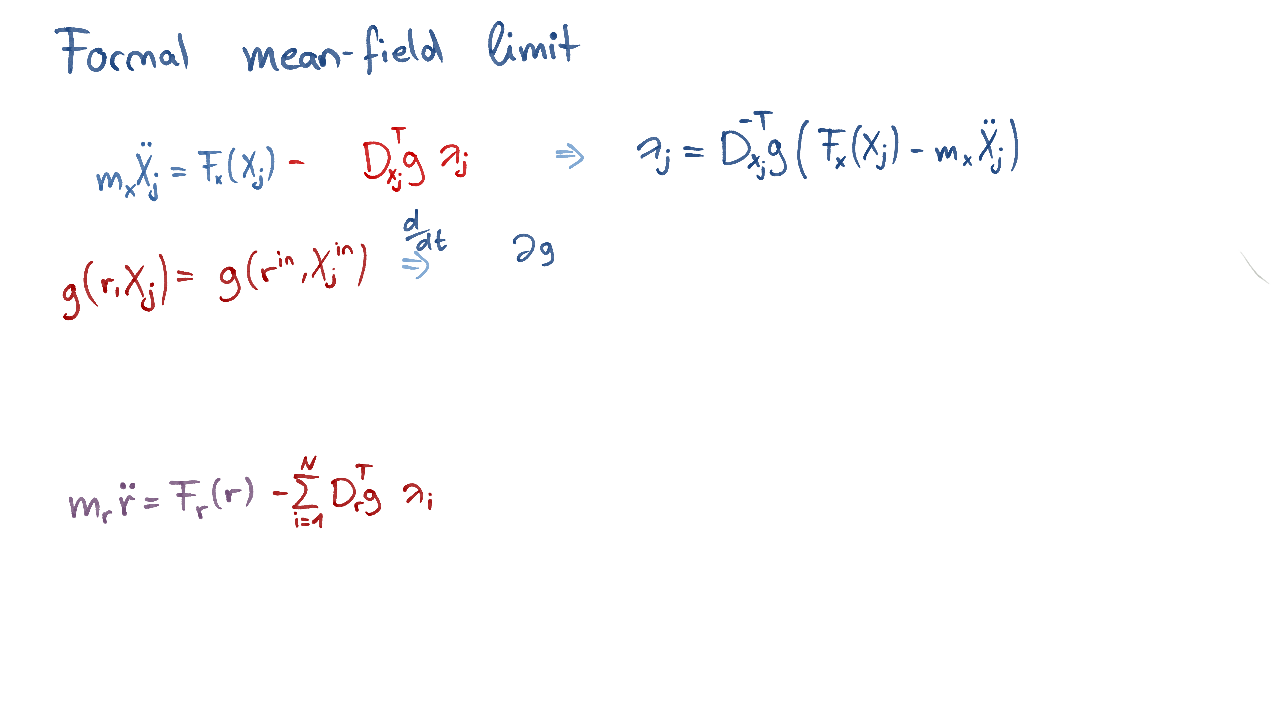 Formal mean-field limit
m_x Ẍ_j = F_x(X_j) - D_{x_j}^T g λ_j ⇒ λ_j = D_{x_j}^{-T} g (F_x(X_j) - m_x Ẍ_j)
g(r, X_j) = g(r^{in}, X_j^{in}) ⇒ d/dt ∂g
m_r r̈ = F_r(r) - ∑_{i=1}^{N} D_r^T g λ_i